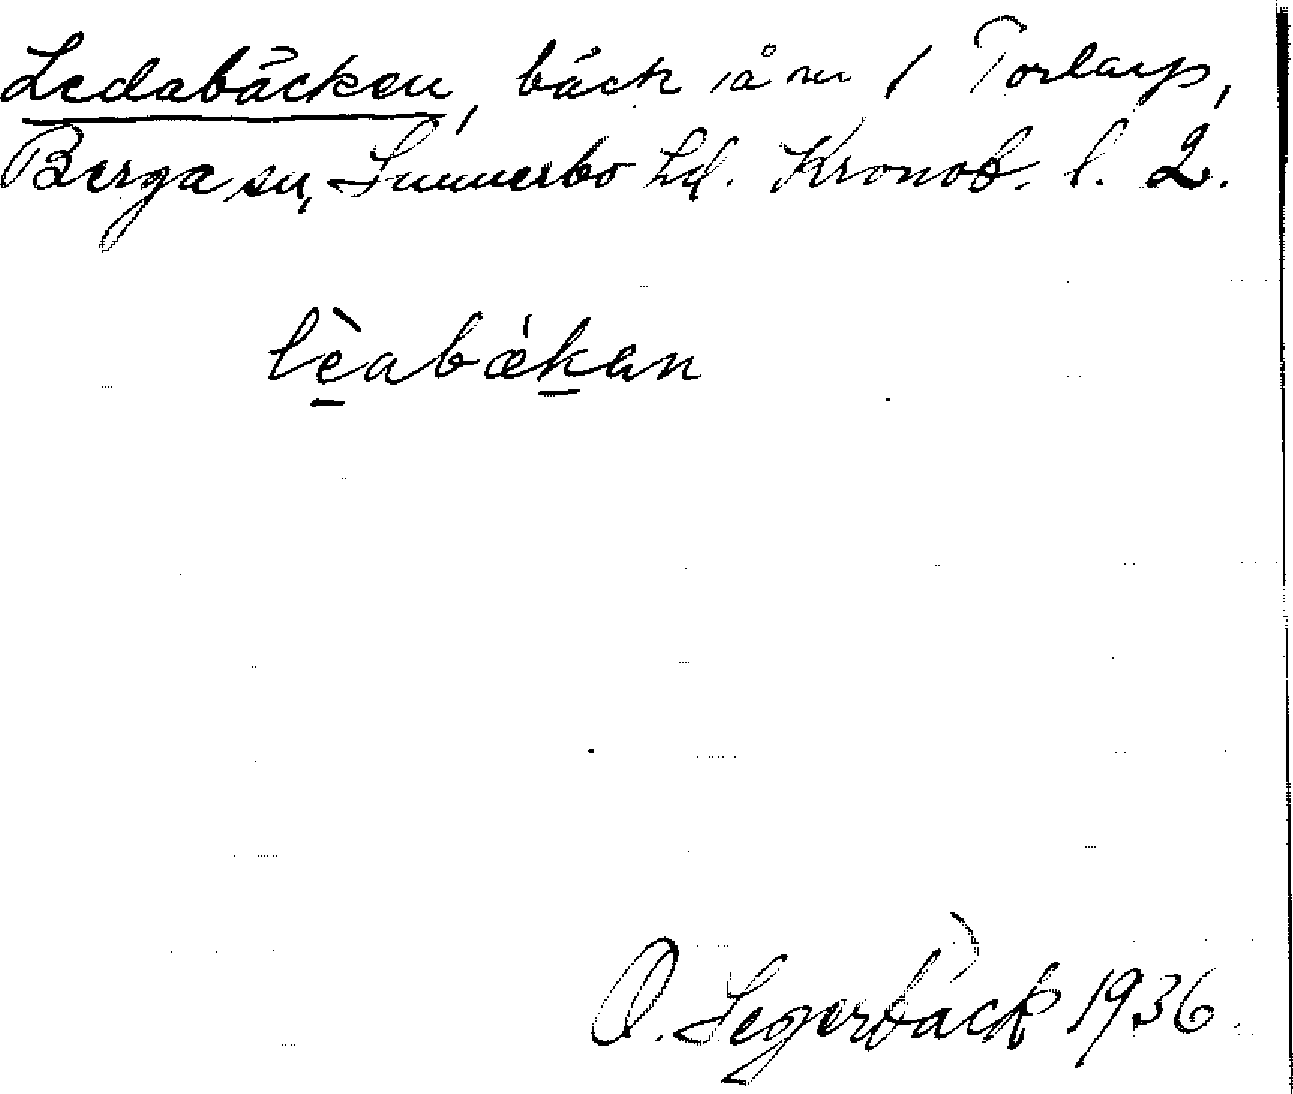 Ledabäcken, bäck å nr 1 Torlarp,
Berga sn, Sunnerbo hd. Kronob. l. 2.
lèabǽkan
O. Segerbäck 1936